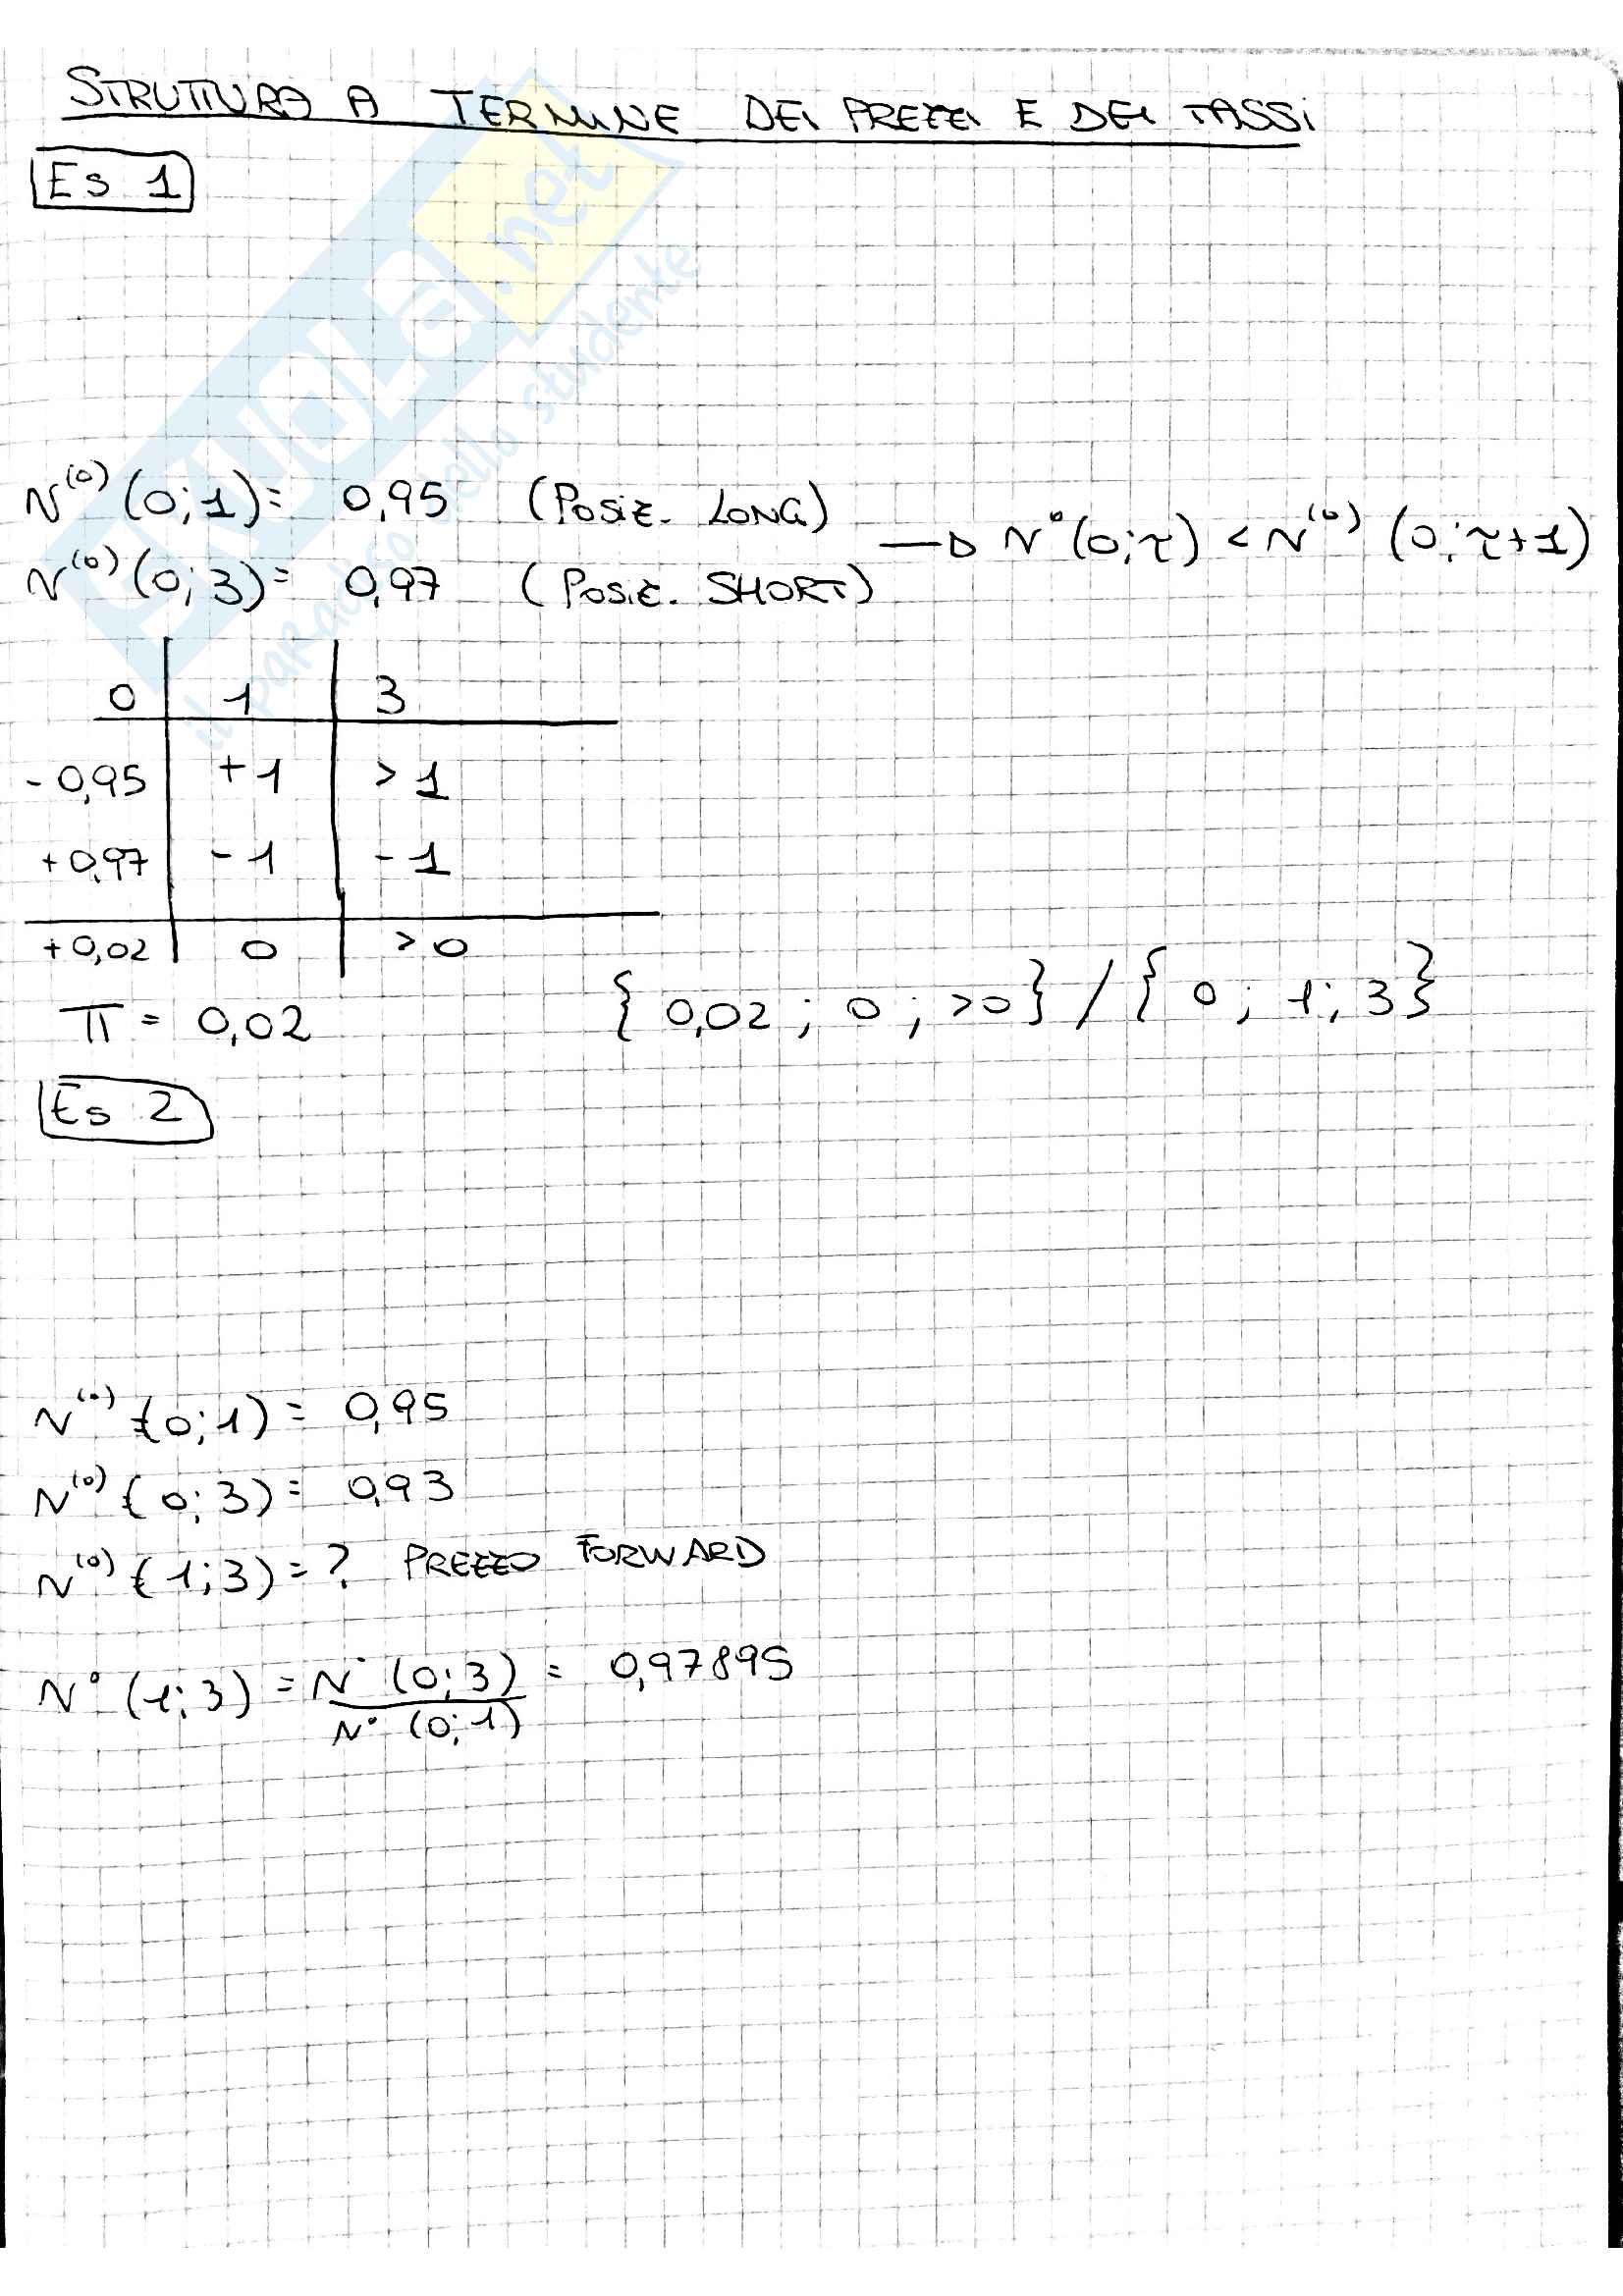 STRUTTURA A TERMINE DEI PREZZI E DEI TASSI
Es 1
N⁽⁰⁾ (0;1) = 0,95 (POSIZ. LONG)
N⁽⁰⁾ (0;3) = 0,97 (POSIZ. SHORT)
→ N° (0;τ) < N⁽⁰⁾ (0;τ+1)
0 | 1 | 3
- 0,95 | +1 | > 1
+ 0,97 | - 1 | - 1
+ 0,02 | 0 | > 0
Π = 0,02 { 0,02 ; 0 ; >0 } / { 0 ; 1 ; 3 }
Es 2
N⁽⁰⁾ (0;1) = 0,95
N⁽⁰⁾ (0;3) = 0,93
N⁽⁰⁾ (1;3) = ? PREZZO FORWARD
N° (1;3) = N° (0;3) = 0,97895
N° (0;1)
skuola.net
il paradiso dello studente